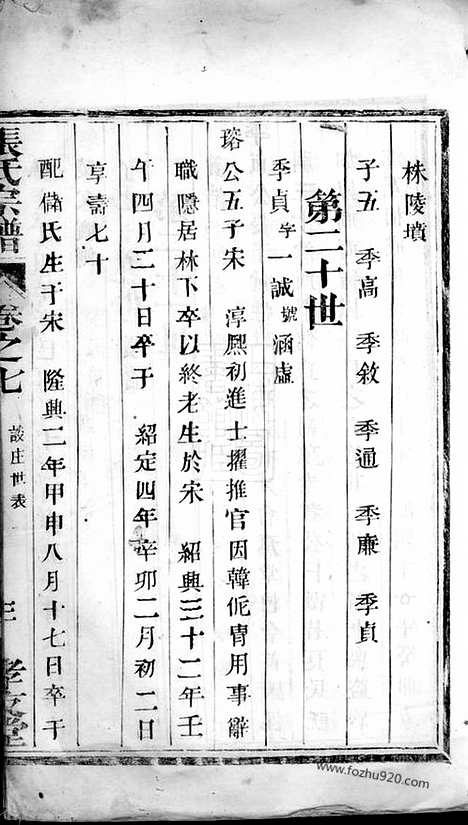 株陵墳
子五 季高 季敘 季通 季廉 季貞
第二十世
季貞字一誠號涵虛
瑢公五子宋 淳熙初進士擢推官因韓侂冑用事辭
職隱居林下卒以終老生於宋 紹興三十二年壬
午四月二十日卒于 紹定四年辛卯二月初二日
享壽七十
配儲氏生于宋 隆興二年甲申八月十七日卒于
張氏宗譜 卷之七 談庄世表 三 孝友堂
www.fozhu920.com